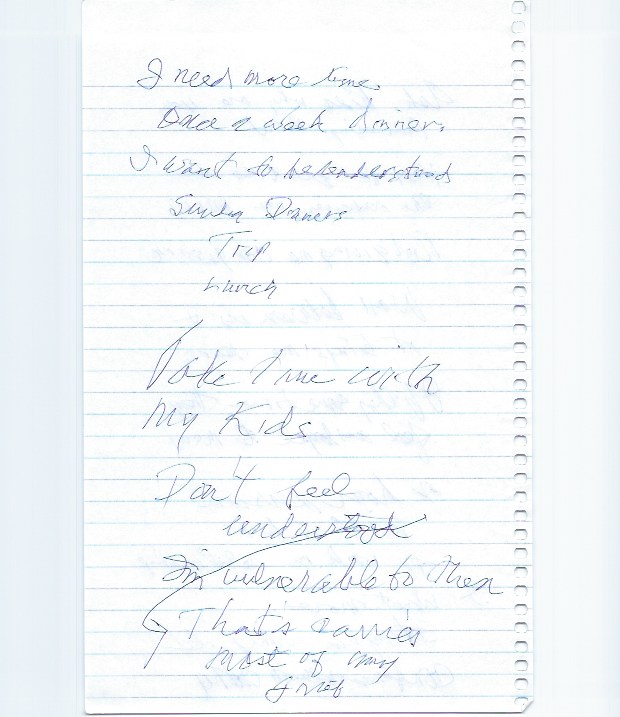 I need more time.
Once a week dinner.
I want to be understood
Sunday Dinners
Trip
Lunch
Take time with
My Kids
Don't feel
understood
I'm vulnerable to them
That's carries
most of my
grief